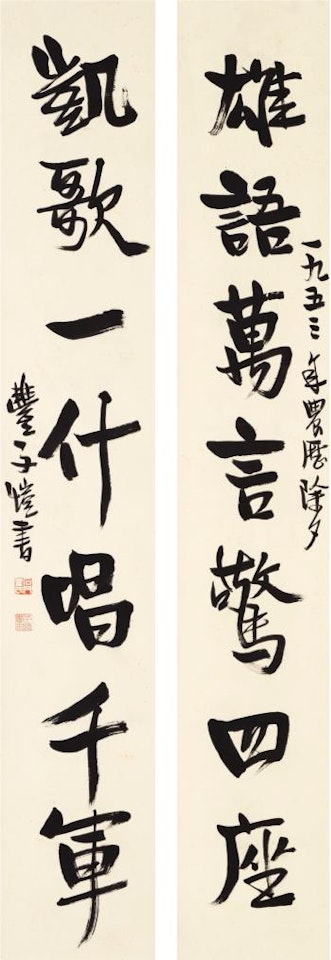 雄語萬言驚四座
一九五三年農歷除夕
凱歌一什唱千軍
豐子愷書